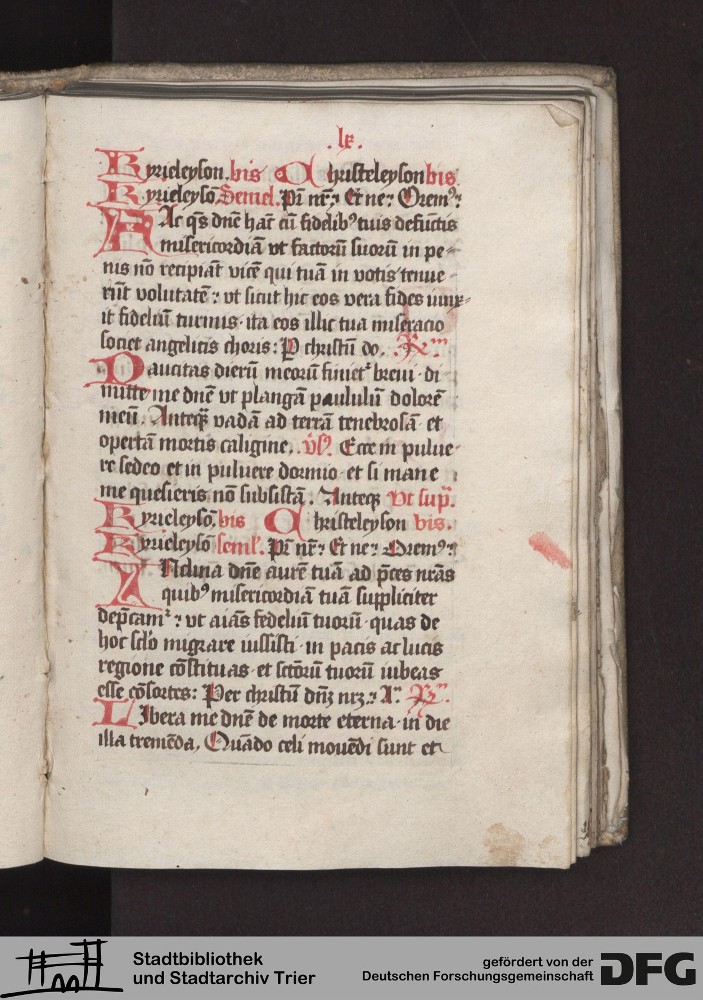 .lx.
Kyrieleyson. bis Christeleyson bis
Kyrieleysō Semel. Pr̄ nr̄: Et ne: Oremꝰ:
FAc q̄s dn̄e hāc cū fidelibꝰ tuis defūctis
misericordiā vt factorū suorū in pe-
nis nō recipiāt vicē qui tuā in votis tenue
rūt volūtatē: vt sicut hic eos vera fides iunx-
it fidelium turmis. ita eos illic tua miseracio
societ angelicis choris: P christū do.
Paucitas dierū meorū finietᷣ breui. di
mitte me dn̄e vt plangā paululū dolorē
meū. Anteqꝫ vadā ad terrā tenebrosā. et
opertā mortis caligine. vs̄. Ecce in pulue-
re sedeo et in puluere dormio. et si mane
me quesieris nō subsistā. Anteqꝫ vt sup̄.
Kyrieleysō. bis Christeleyson vis.
Kyrieleysō seml̄. Pr̄ nr̄: Et ne: Oremꝰ:
INclina dn̄e aurē tuā ad p̄ces nr̄as
quibꝰ misericordiā tuā suppliciter
dep̄camᷣ: vt aīas fedeliū tuorū. quas de
hoc sc̄lo migrare iussisti. in pacis ac lucis
regione cōstituas. et sc̄torū tuorū iubeas
esse cōsortes: Per christū dn̄ꝫ nrꝫ: A.
LIbera me dn̄e de morte eterna. in die
illa tremēda. Quādo celi mouēdi sunt et
Stadtbibliothek
und Stadtarchiv Trier
gefördert von der
Deutschen Forschungsgemeinschaft
DFG